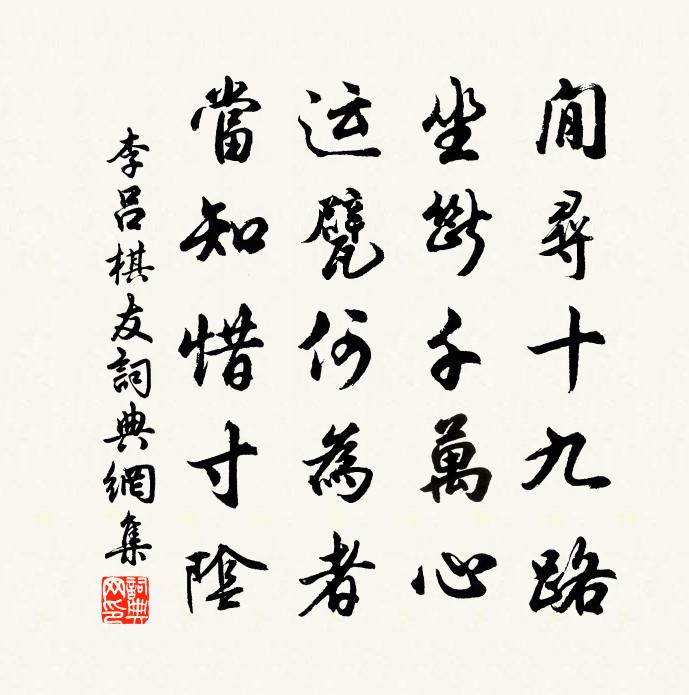 閒尋十九路
坐斷千萬心
运甓何為者
當知惜寸陰
李呂棋友詞典網集
詞典網印